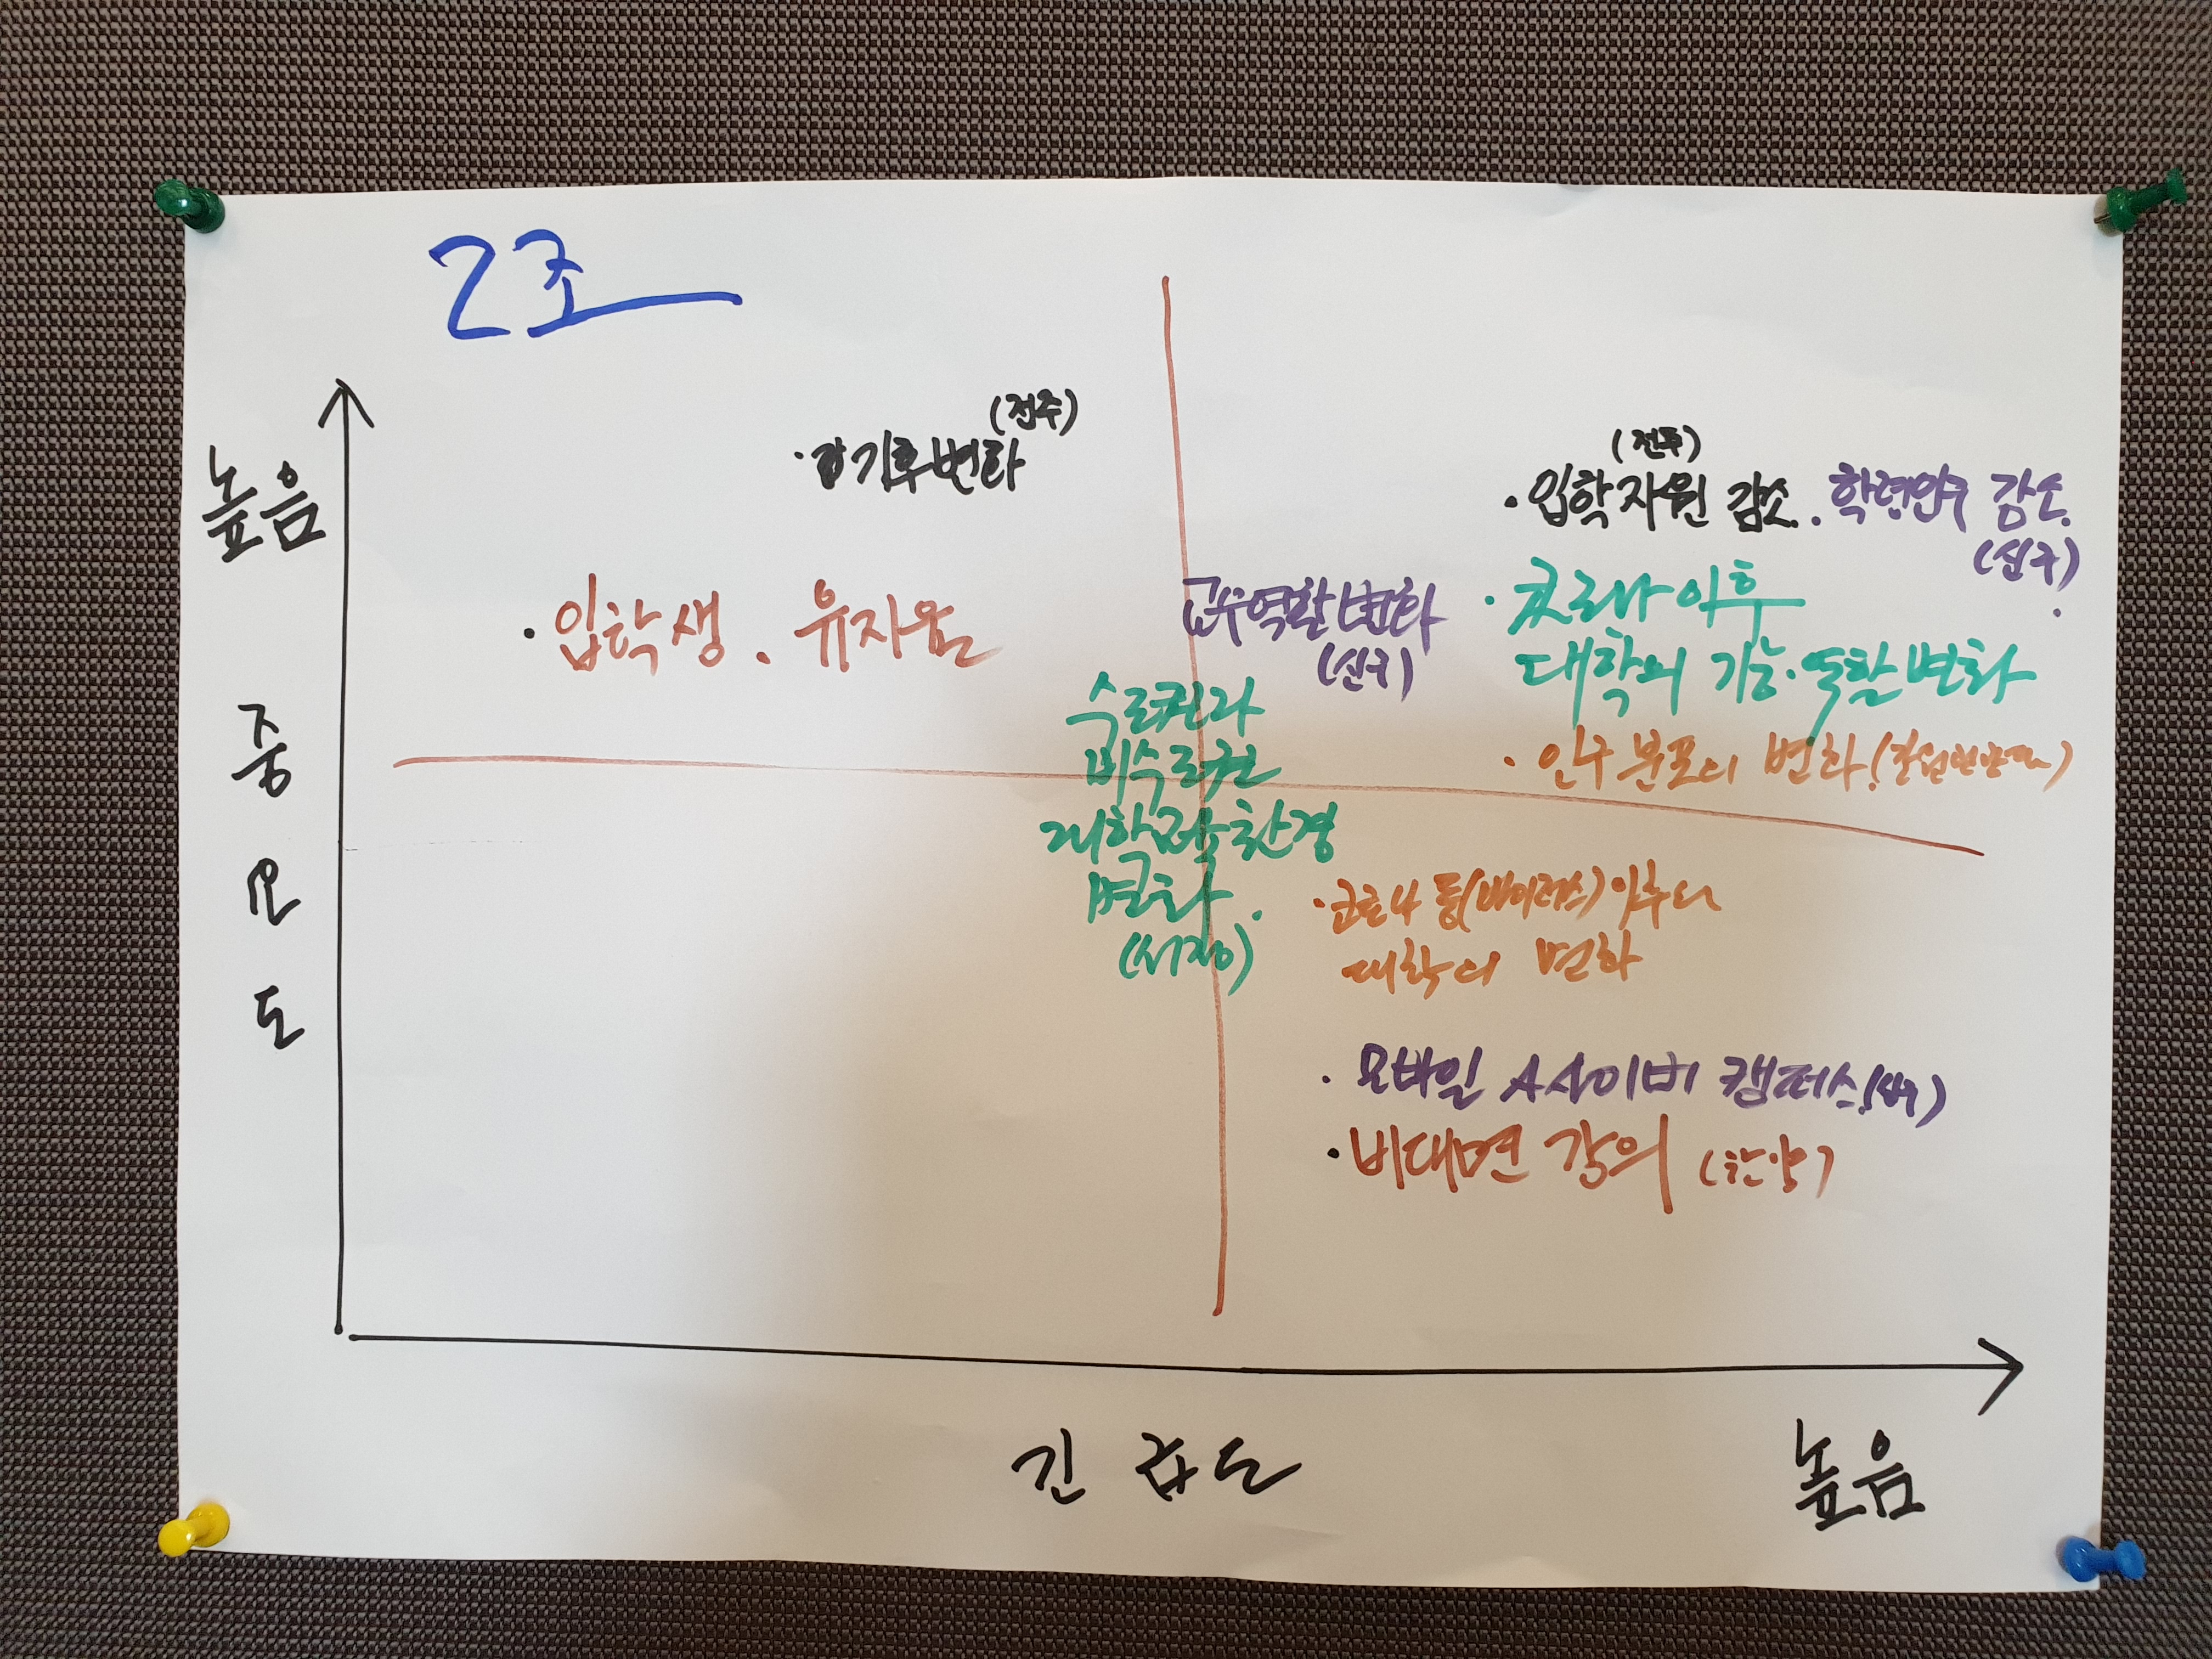 2조
높음
중요도
(전주)
· 기후변화
· 입학생 · 유자원
(전주)
· 입학자원 감소
· 학령인구 감소
(신구)
교수역할변화
(신구)
· 코로나 이후
대학의 기능·역할변화
· 인구분포의 변화
수도권과
비수도권
대학교육환경
변화
(서강)
· 코로나 등(바이러스) 이후의
대학의 변화
· 모바일 사이버 캠퍼스 (신구)
· 비대면 강의 (한양)
긴급도
높음